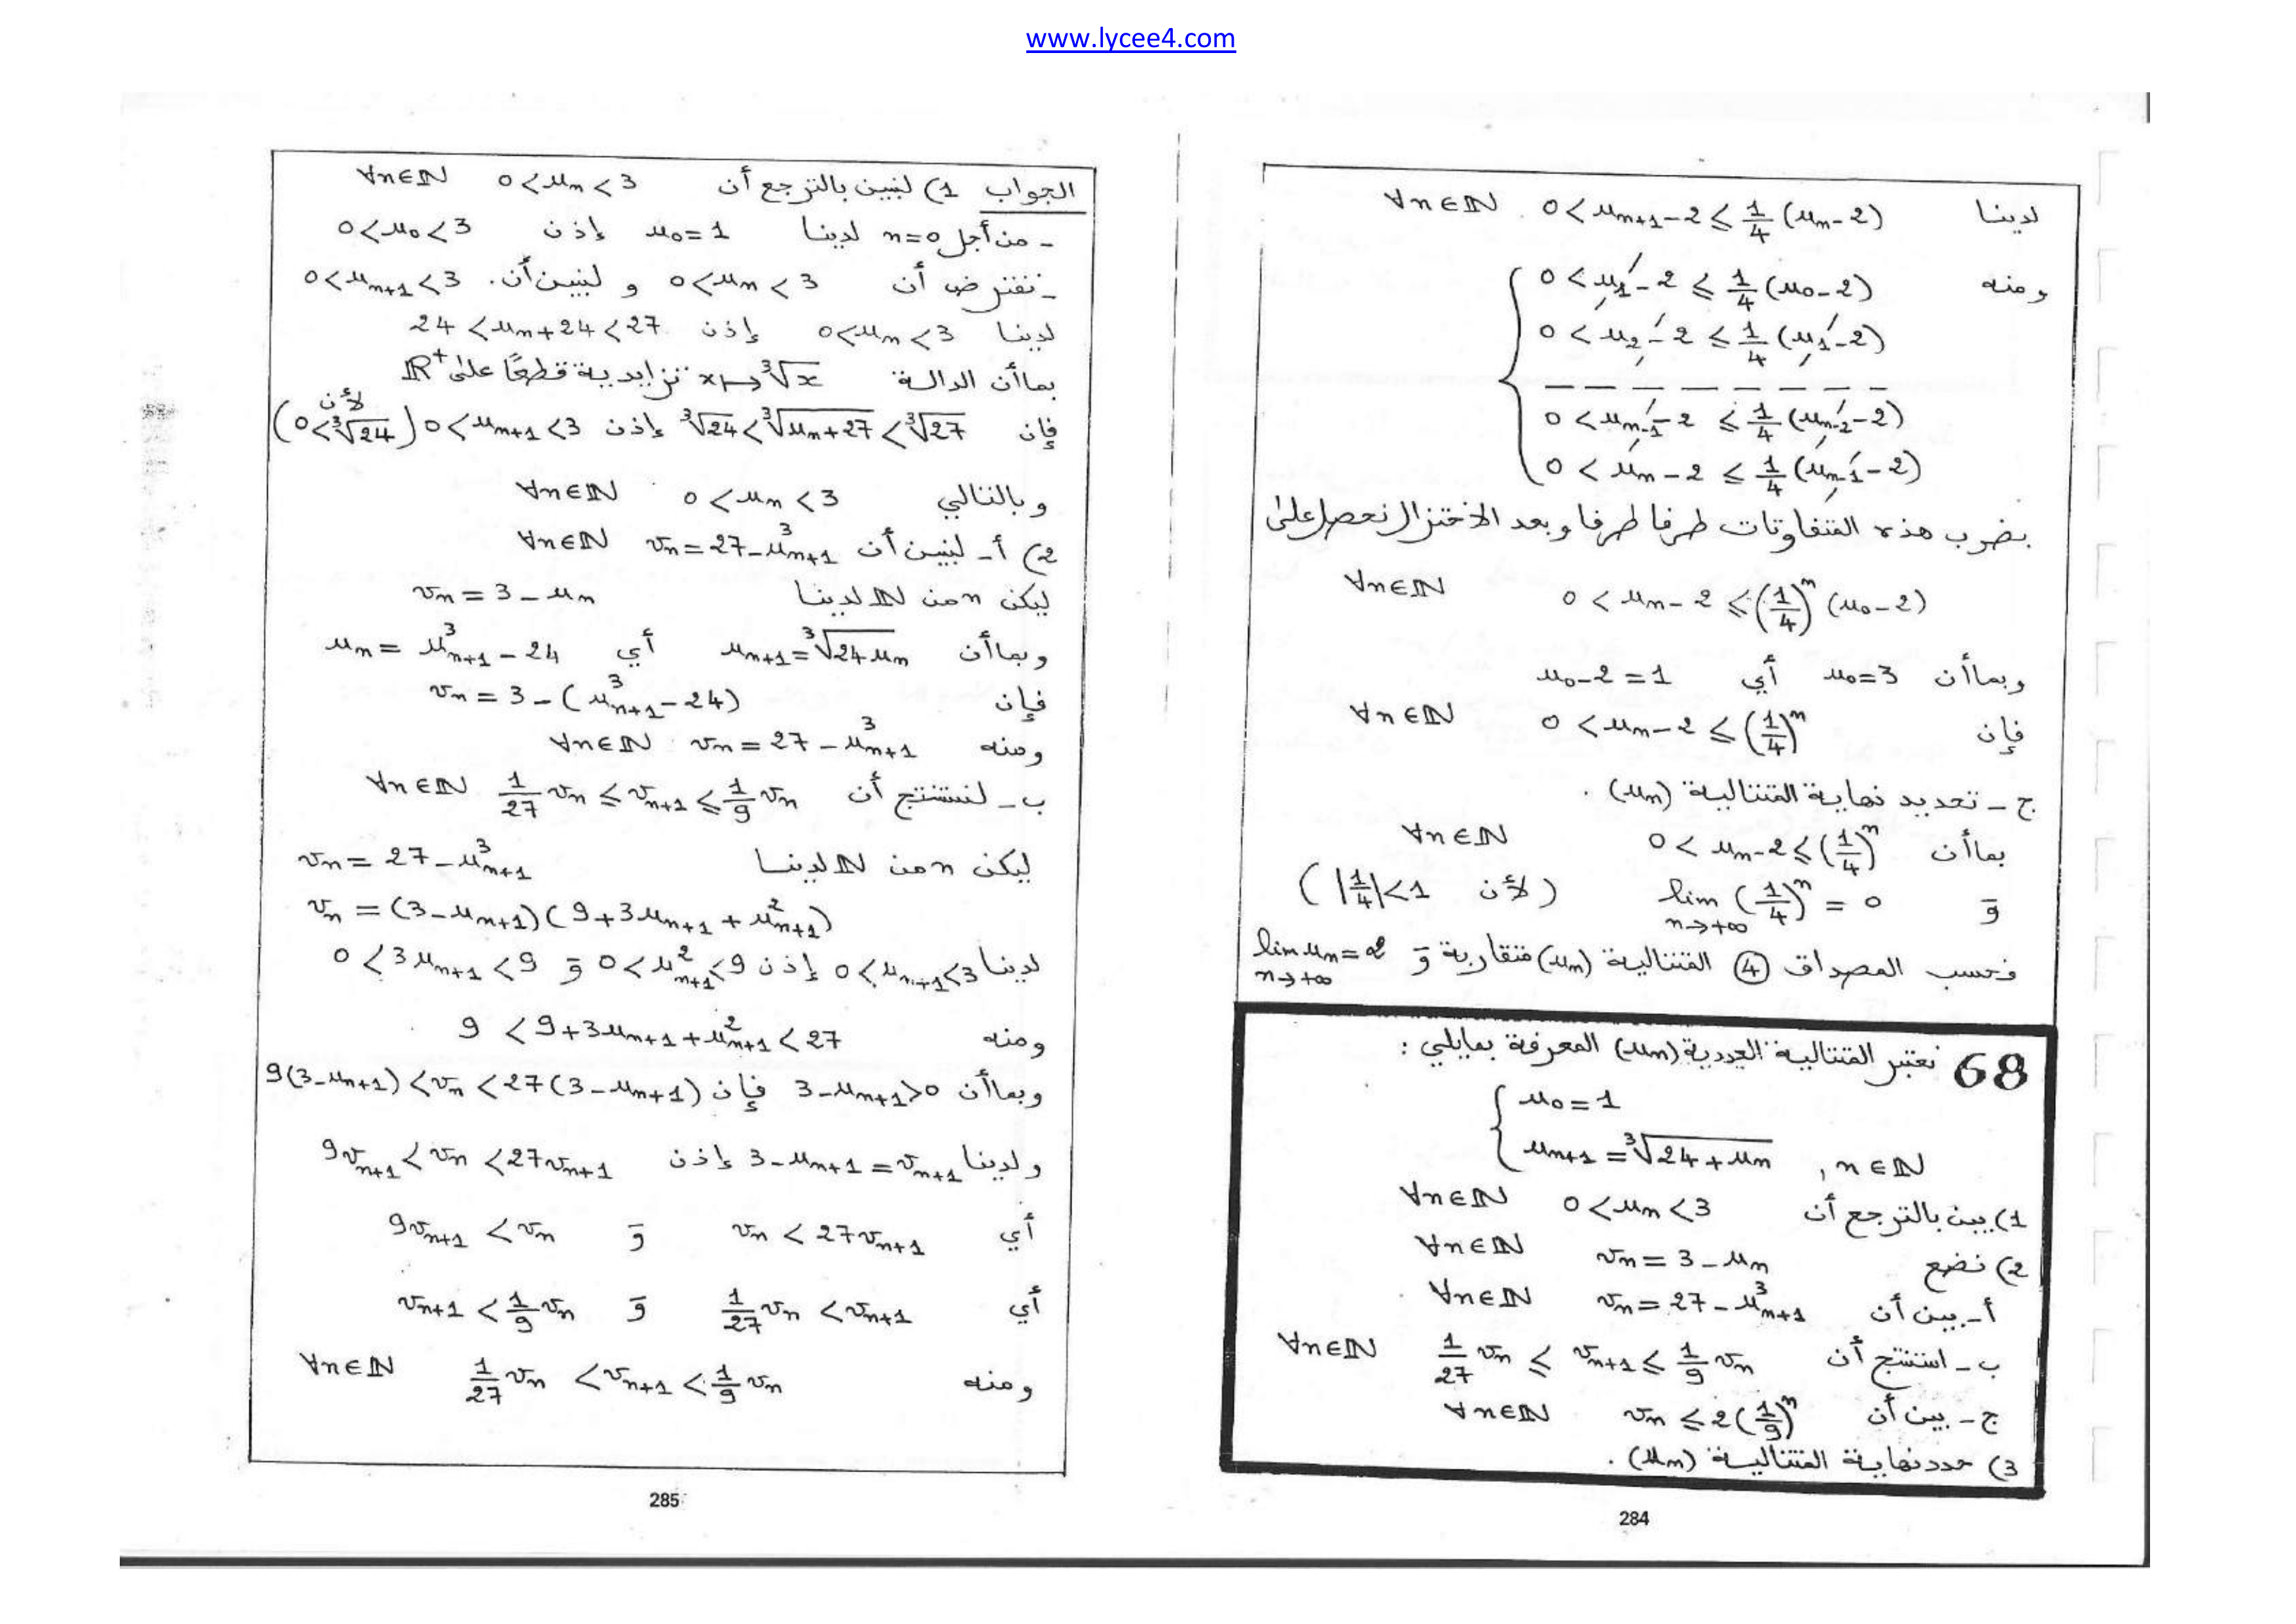 www.lycee4.com
لدينا 0 < u_{n+1} - 2 ≤ \frac{1}{4}(u_n - 2) ∀n∈ℕ
ومنه 0 < u_1 - 2 ≤ \frac{1}{4}(u_0 - 2)
0 < u_2 - 2 ≤ \frac{1}{4}(u_1 - 2)
— — — — — — — —
0 < u_{n-1} - 2 ≤ \frac{1}{4}(u_{n-2} - 2)
0 < u_n - 2 ≤ \frac{1}{4}(u_{n-1} - 2)
بضرب هذه المتفاوتات طرفا طرفا وبعد الاختزال نحصل على
0 < u_n - 2 ≤ (\frac{1}{4})^n (u_0 - 2) ∀n∈ℕ
وبما أن u_0 = 3 أي u_0 - 2 = 1
فإن 0 < u_n - 2 ≤ (\frac{1}{4})^n ∀n∈ℕ
ج - تحديد نهاية المتتالية (u_n).
بما أن 0 < u_n - 2 ≤ (\frac{1}{4})^n ∀n∈ℕ
و lim_{n→+∞} (\frac{1}{4})^n = 0 (لأن |\frac{1}{4}| < 1)
فحسب المصداق ④ المتتالية (u_n) متقاربة و lim_{n→+∞} u_n = 2
68 نعتبر المتتالية العددية (u_n) المعرفة بمايلي :
u_0 = 1
u_{n+1} = ∛(24 + u_n) , n∈ℕ
1) بين بالترجع أن 0 < u_n < 3 ∀n∈ℕ
2) نضع v_n = 3 - u_n ∀n∈ℕ
أ - بين أن v_n = 27 - u_{n+1}^3 ∀n∈ℕ
ب - استنتج أن \frac{1}{27} v_n ≤ v_{n+1} ≤ \frac{1}{9} v_n ∀n∈ℕ
ج - بين أن v_n ≤ 2(\frac{1}{9})^n ∀n∈ℕ
3) حدد نهاية المتتالية (u_n).
284
الجواب 1) لنبين بالترجع أن 0 < u_n < 3 ∀n∈ℕ
- من أجل n=0 لدينا u_0 = 1 إذن 0 < u_0 < 3
- نفترض أن 0 < u_n < 3 و لنبين أن. 0 < u_{n+1} < 3
لدينا 0 < u_n < 3 إذن 24 < u_n + 24 < 27
بما أن الدالة x ↦ ∛x تزايدية قطعًا على ℝ^+
فإن ∛24 < ∛(u_n + 27) < ∛27 إذن 0 < u_{n+1} < 3 (لأن 0 < ∛24)
وبالتالي 0 < u_n < 3 ∀n∈ℕ
2) أ - لنبين أن v_n = 27 - u_{n+1}^3 ∀n∈ℕ
ليكن n من ℕ لدينا v_n = 3 - u_n
وبما أن u_{n+1} = ∛(24 u_n) أي u_n = u_{n+1}^3 - 24
فإن v_n = 3 - (u_{n+1}^3 - 24)
ومنه v_n = 27 - u_{n+1}^3 ∀n∈ℕ
ب - لنستنتج أن \frac{1}{27} v_n ≤ v_{n+1} ≤ \frac{1}{9} v_n ∀n∈ℕ
ليكن n من ℕ لدينا v_n = 27 - u_{n+1}^3
v_n = (3 - u_{n+1})(9 + 3u_{n+1} + u_{n+1}^2)
لدينا 0 < u_{n+1} < 3 إذن 0 < u_{n+1}^2 < 9 و 0 < 3u_{n+1} < 9
ومنه 9 < 9 + 3u_{n+1} + u_{n+1}^2 < 27
وبما أن 3 - u_{n+1} > 0 فإن 9(3 - u_{n+1}) < v_n < 27(3 - u_{n+1})
ولدينا 3 - u_{n+1} = v_{n+1} إذن 9v_{n+1} < v_n < 27v_{n+1}
أي v_n < 27v_{n+1} و 9v_{n+1} < v_n
أي \frac{1}{27} v_n < v_{n+1} و v_{n+1} < \frac{1}{9} v_n
ومنه \frac{1}{27} v_n < v_{n+1} < \frac{1}{9} v_n ∀n∈ℕ
285